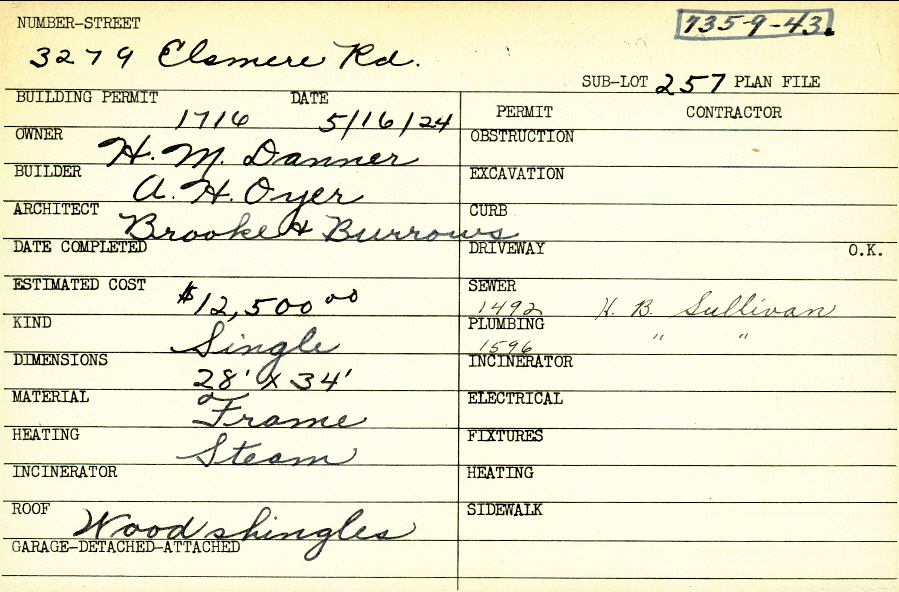 NUMBER-STREET
735-9-43.
3279 Elsmere Rd.
SUB-LOT 257 PLAN FILE
BUILDING PERMIT DATE
1716 5/16/24
PERMIT CONTRACTOR
OWNER
H. M. Danner
OBSTRUCTION
BUILDER
A. H. Oyer
EXCAVATION
ARCHITECT
Brooke & Burrows
CURB
DATE COMPLETED
DRIVEWAY O.K.
ESTIMATED COST
$12,500 00
SEWER
1492 H. B. Sullivan
KIND
Single
PLUMBING
1596 " "
DIMENSIONS
28' x 34'
INCINERATOR
MATERIAL
Frame
ELECTRICAL
HEATING
Steam
FIXTURES
INCINERATOR
HEATING
ROOF
Wood shingles
SIDEWALK
GARAGE-DETACHED-ATTACHED